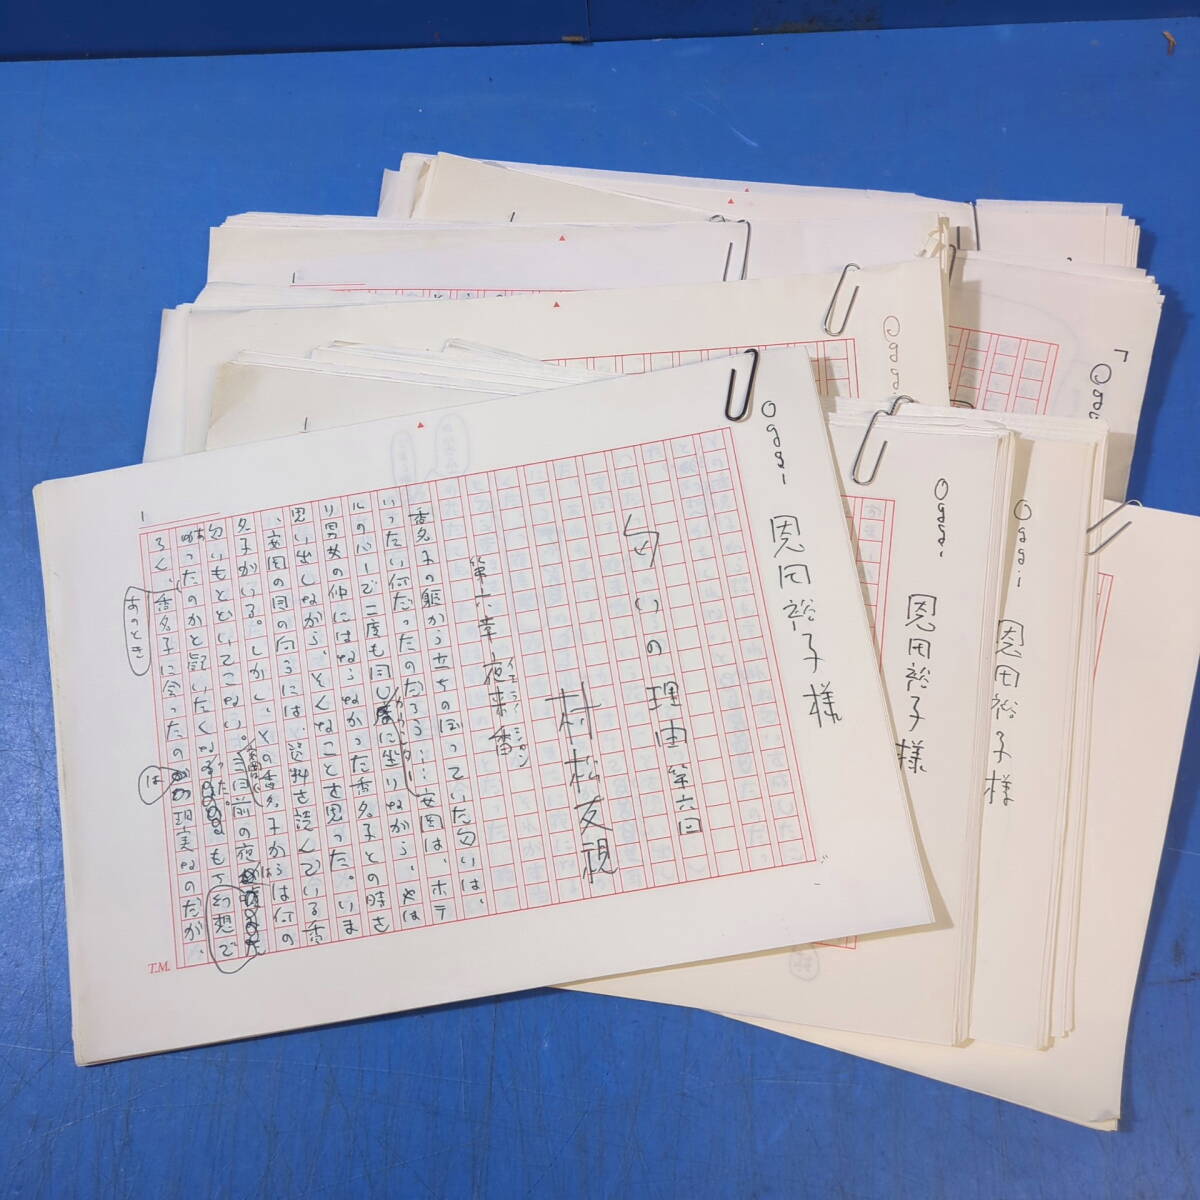 Oggi 恩田裕子様
匂いの理由 第六回
村松友視
第六章 夜来香
イエライシャン
香名子の軀から立ちのぼっていた匂いは、
いったい何だったのだろう……安岡は、ホテ
ルのバーで二度も同じ
カウンター
に坐りながら、やは
り男女の仲にはならなかった香名子との時を
思い出しながら、そんなことを思った。いま
、安岡の目の向うには、資料を読んでいる香
名子がいる。しかし、その香名子からは何の
匂いもとどいてこない。
前の夜
ったのかと疑いたくな
った。
も
幻想で
ろく、香名子に会ったの
は
現実なのだが、
あのとき
1
T.M.
Oggi
恩田裕子様
Oggi
恩田裕子様
Oggi
「Oggi
1
1